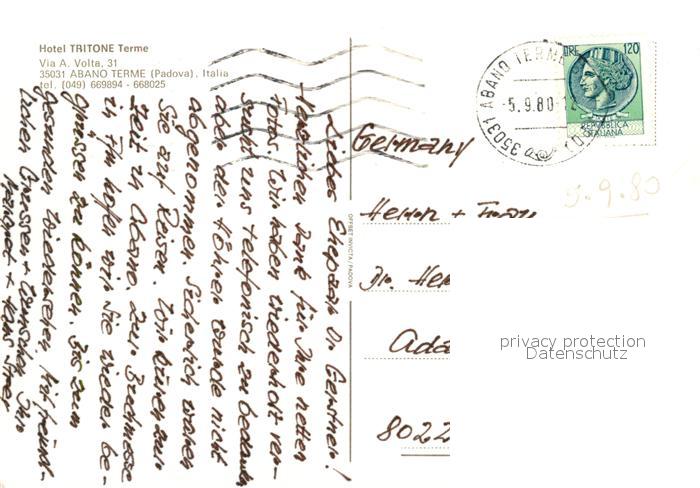 Hotel TRITONE Terme
Via A. Volta, 31
35031 ABANO TERME (Padova), Italia
tel. (049) 669894 - 668025
LIRE 120
REPUBBLICA
ITALIANA
35031 ABANO TERME
5.9.80-12
5.9.80
OFFSET INVICTA / PADOVA
Germany
Herrn + Frau
Dr.
8022
privacy protection
Datenschutz
Liebes Ehepaar Dr. Gerstner!
Herzlichen Dank für Ihre netten
Fotos. Wir haben wiederholt ver-
sucht uns telefonisch zu bedanken
aber der Hörer wurde nicht
abgenommen. Sicherlich waren
Sie auf Reisen. Wir kuren zur
Zeit in Abano. Zur Buchmesse
in Ffm hoffen wir Sie wieder be-
grüssen zu können. Bis zum
gesunden Wiedersehen mit freund-
lichen Grüssen + Wünschen Ihre